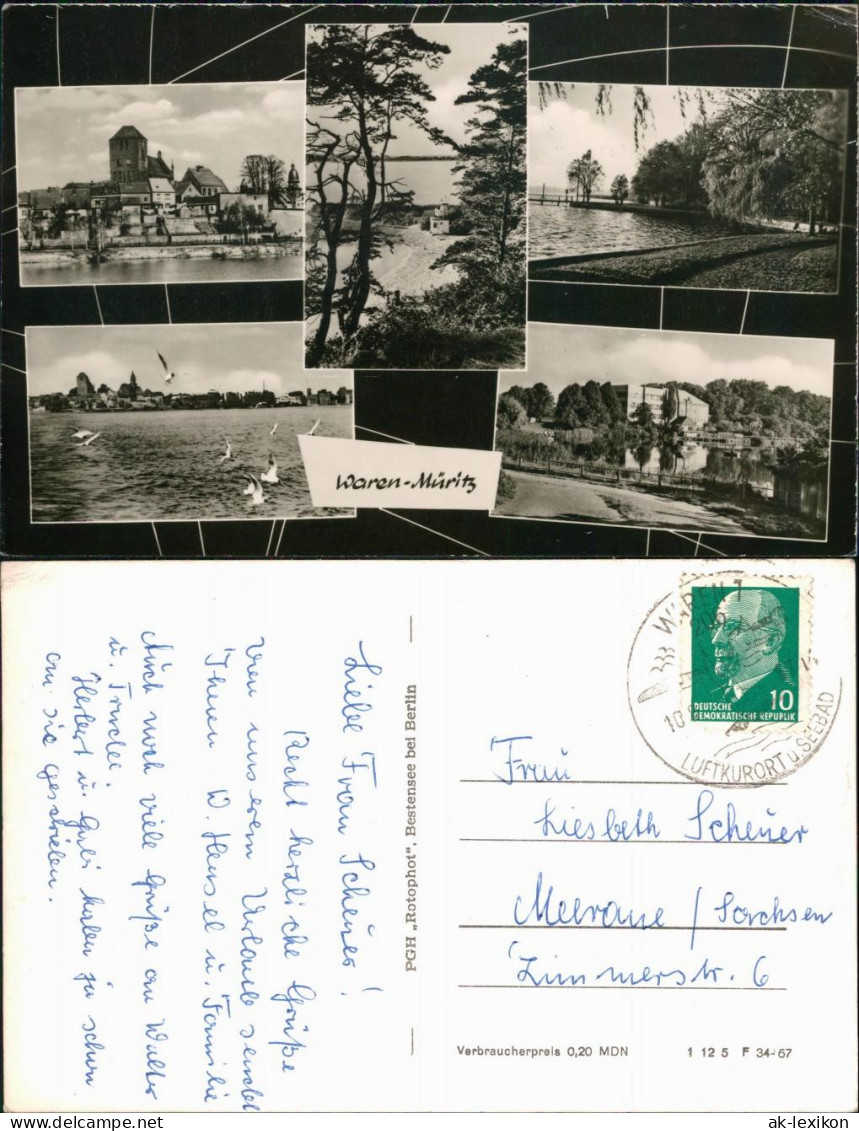 Waren-Müritz
Liebe Frau Scheuer!
Recht herzliche Grüße
von unserem Urlaub sendet
Ihnen W. Hensel u. Familie
Auch noch viele Grüße an Walter
u. Trudel
Herbert u. haben ja schon
an Sie geschrieben.
PGH „Rotophot", Bestensee bei Berlin
WAREN 1
10
LUFTKURORT u. SEEBAD
10
DEUTSCHE
DEMOKRATISCHE REPUBLIK
Frau
Liesbeth Scheuer
Meerane / Sachsen
Zimmerstr. 6
Verbraucherpreis 0,20 MDN 1 12 5 F 34-67
ak-lexikon